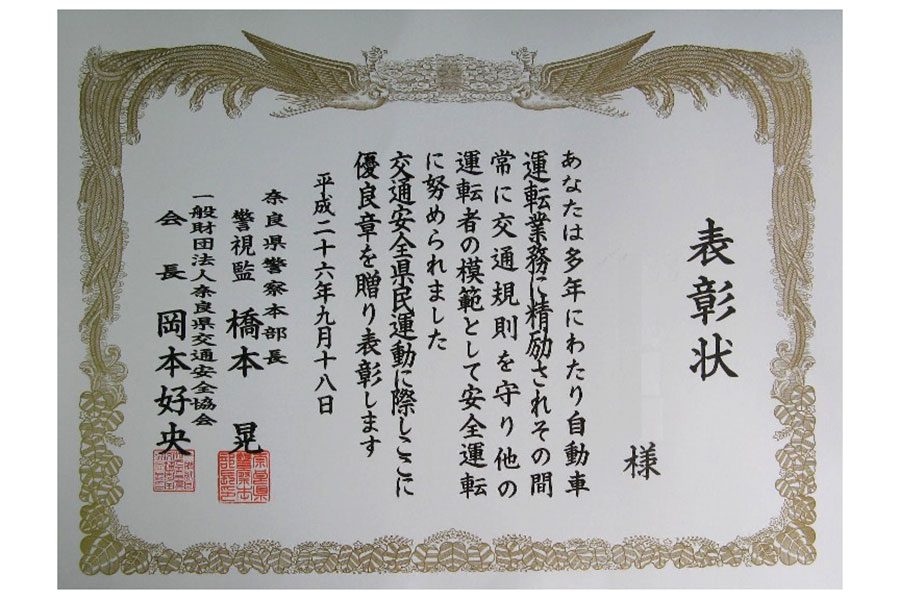 表彰状
様
あなたは多年にわたり自動車
運転業務に精励されその間
常に交通規則を守り他の
運転者の模範として安全運転
に努められました
交通安全県民運動に際しここに
優良章を贈り表彰します
平成二十六年九月十八日
奈良県警察本部長
警視監 橋本 晃
一般財団法人奈良県交通安全協会
会長 岡本好央